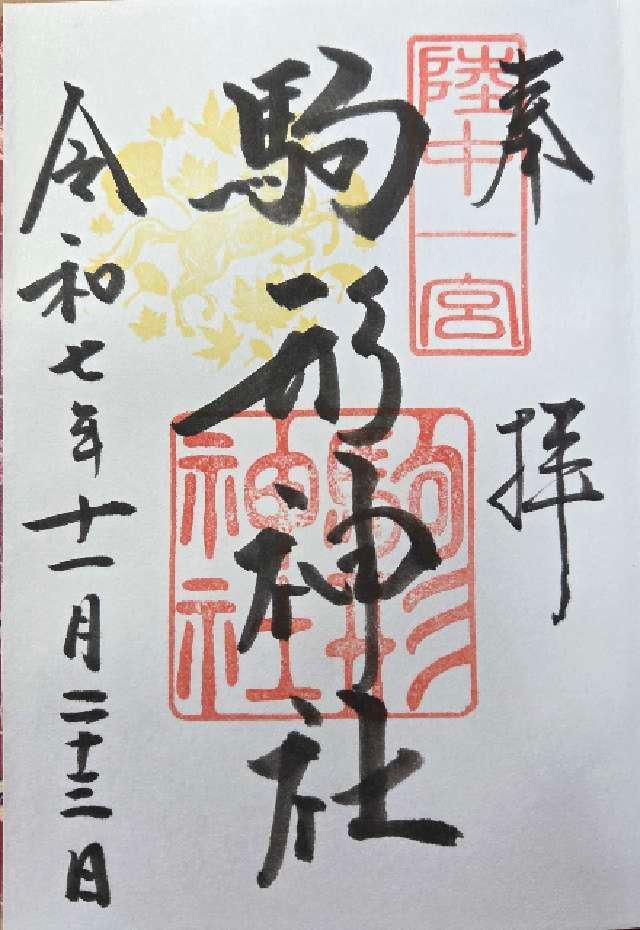 奉拝
陸中一宮
駒形神社
駒形神社
令和七年十一月二十三日